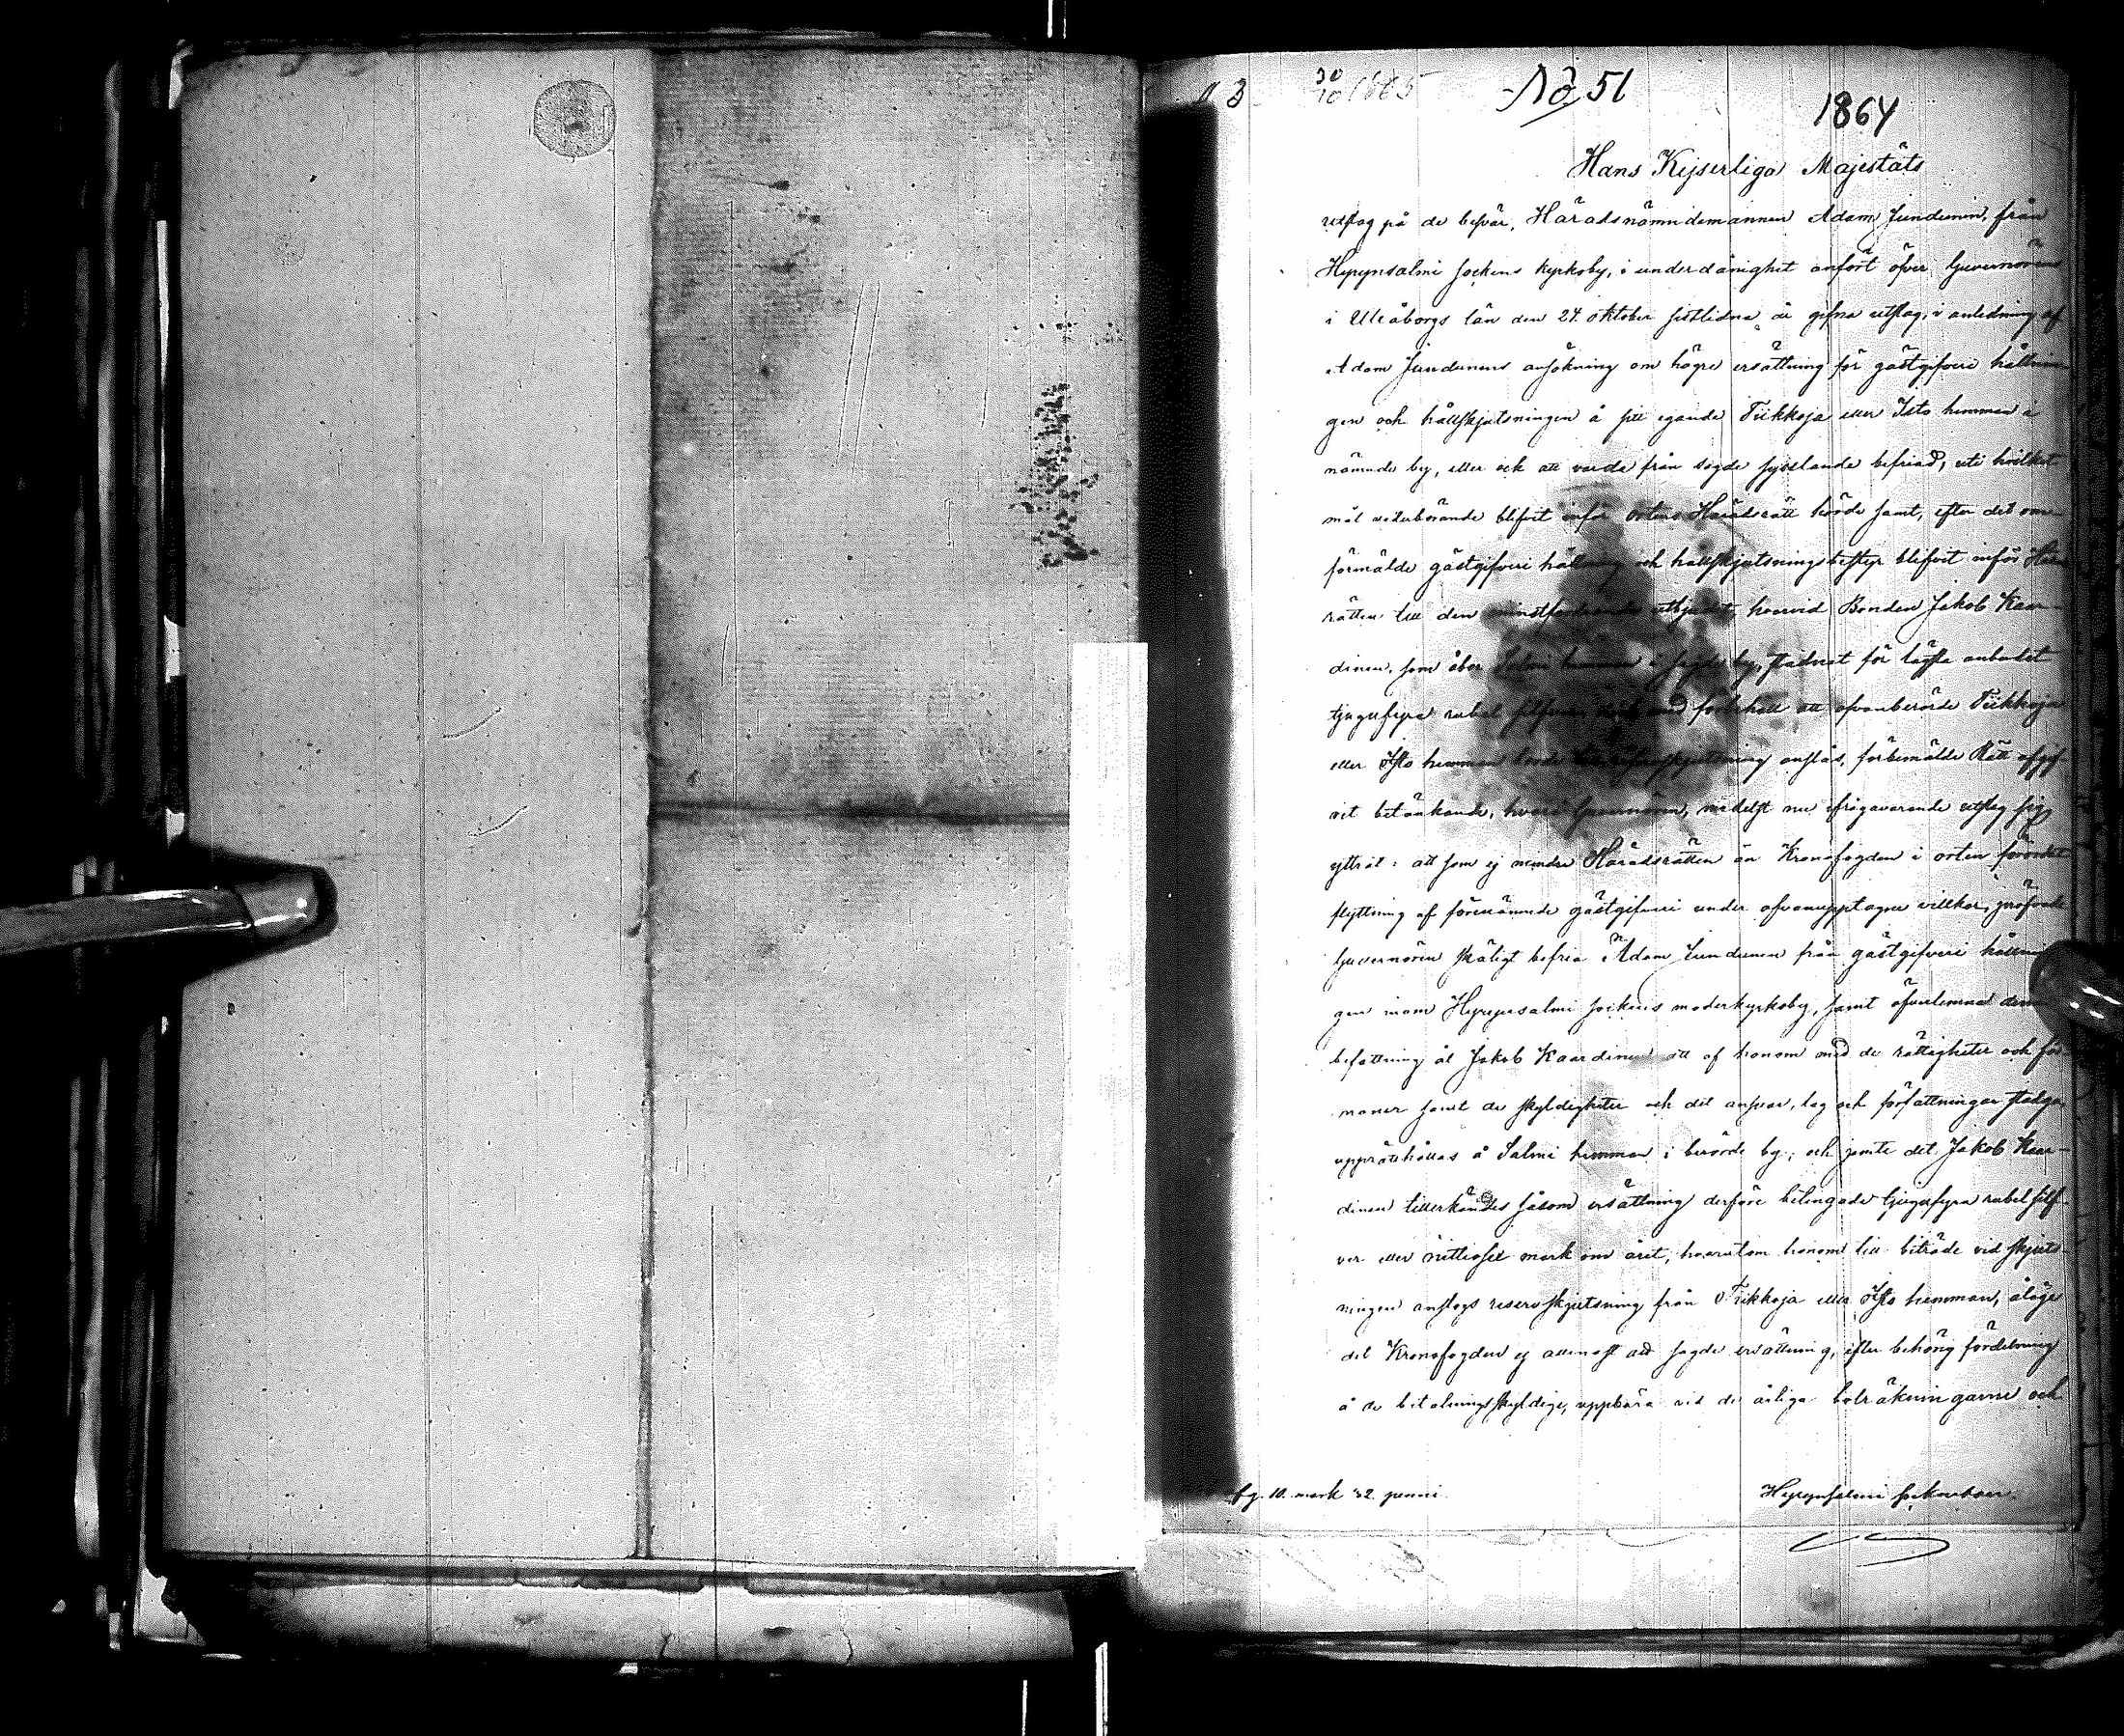 3 30/10 1865 No 51
1864
Hans Kejserliga Majestäts
utslag på de besvär, Häradsnämndemannen Adam Jundunen, från
Hyrynsalmi sockens kyrkoby, i underdånighet anfört öfver Guvernörens
i Uleåborgs län den 24 oktober sistlidna år gifna utslag, i anledning af
Adam Jundunens ansökning om högre ersättning för gästgifveri hållnin-
gen och hållskjutsningen å sitt egande Tiikkaja eller Isto hemman i
nämnde by, eller ock att varda från sagde sysslande befriad, uti hvilket
mål vederbörande blifvit inför ortens Häradsrätt hörde samt, efter det om-
förmälde gästgifveri hållning och hållskjutsningsbestyr blifvit inför Härads
rätten till den minstfordrande utbjudet, hvarvid Bonden Jakob Kaar-
dinen, som åbor Salmi hemman i sagde by, stadnat för lägsta anbudet
tjugufyra rubel silfver med förbehåll att ofvanberörde Tiikkaja
eller Isto hemman borde anslås, förbemälde Rätt afgif-
vit betänkande, hvarå Guvernören, medelst nu ifrågavarande utslag sig
yttrat: att som ej mindre Häradsrätten än Kronofogden i orten förordat
flyttning af förenämnde gästgifveri under ofvanupptagne villkor, pröfvade
Guvernören skäligt befria Adam Jundunen från gästgifveri hållnin-
gen inom Hyrynsalmi sockens moderkyrkoby, samt öfverlemna denna
befattning åt Jakob Kaardinen att af honom med de rättigheter och för-
moner samt de skyldigheter och det ansvar, lag och författningar stadga,
upprätthållas å Salmi hemman i berörde by; och jemte det Jakob Kaar-
dinen tillerkändes såsom ersättning derföre betingade tjugufyra rubel silf-
ver eller nittiosex mark om året, hvarutom honom till biträde vid skjuts-
ningen anslogs reservskjutsning från Tiikkaja eller Isto hemman, ålåge
det Kronofogden ej allenast att sagde ersättning, efter behörig fördelning
å de betalningsskyldige, uppbära vid de årliga boträkningarne och
10 mark 32 penni.
Hyrynsalmi sockneboer.